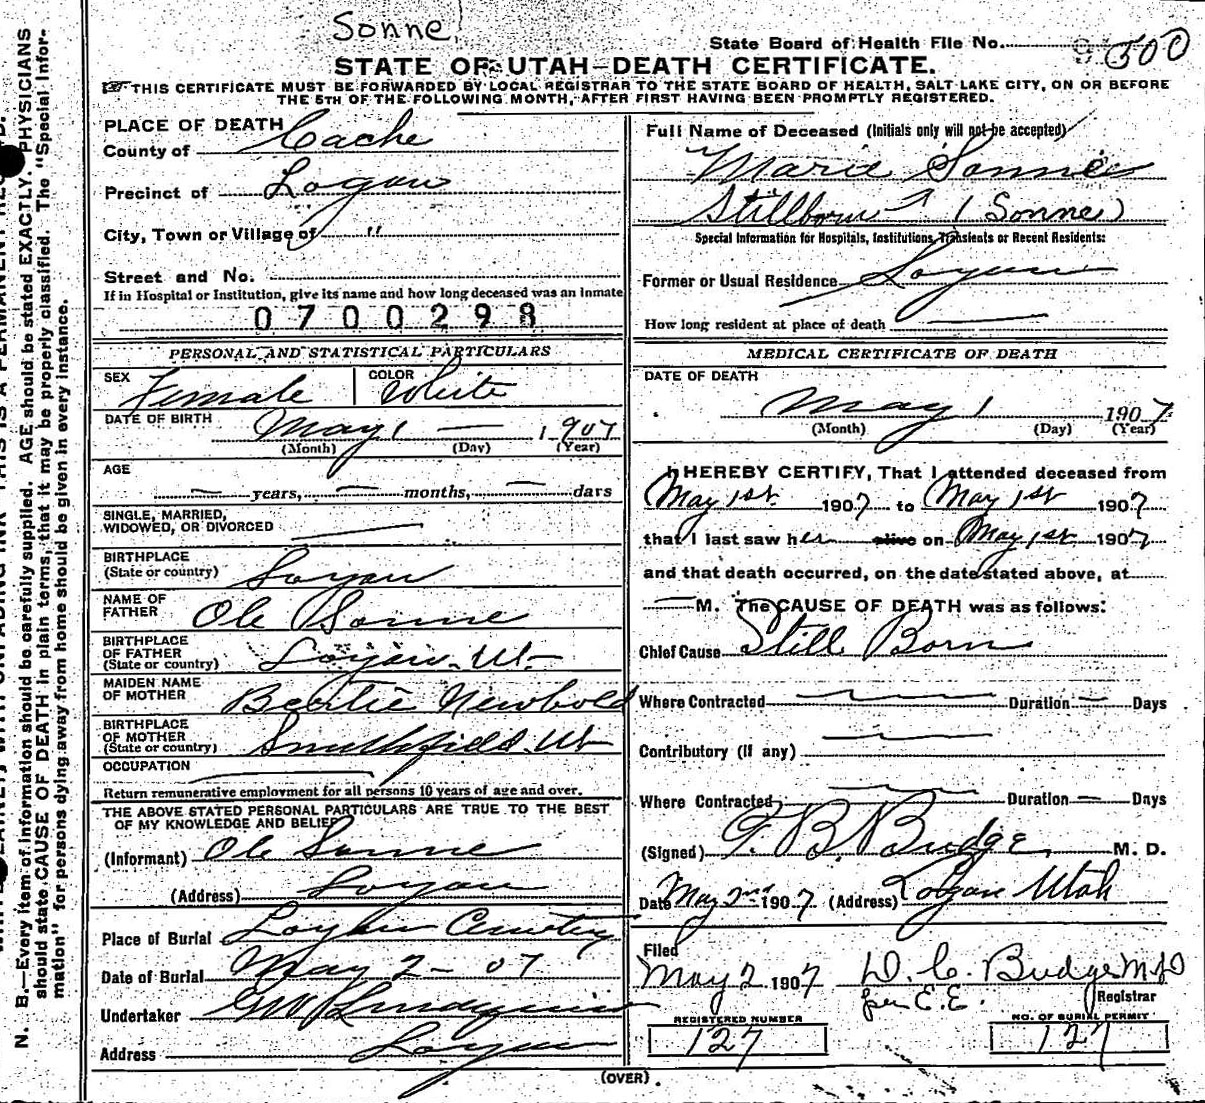 Sonne
State Board of Health File No. 500
STATE OF UTAH—DEATH CERTIFICATE.
THIS CERTIFICATE MUST BE FORWARDED BY LOCAL REGISTRAR TO THE STATE BOARD OF HEALTH, SALT LAKE CITY, ON OR BEFORE
THE 5TH OF THE FOLLOWING MONTH, AFTER FIRST HAVING BEEN PROMPTLY REGISTERED.
PLACE OF DEATH
County of Cache
Precinct of Logan
City, Town or Village of "
Street and No.
If in Hospital or Institution, give its name and how long deceased was an inmate
0700298
PERSONAL AND STATISTICAL PARTICULARS
SEX Female COLOR White
DATE OF BIRTH May 1 — 1907
(Month) (Day) (Year)
AGE
— years, — months, — days
SINGLE, MARRIED,
WIDOWED, OR DIVORCED
BIRTHPLACE
(State or country) Logan
NAME OF
FATHER Ole Sonne
BIRTHPLACE
OF FATHER
(State or country) Logan Ut—
MAIDEN NAME
OF MOTHER Newbold
BIRTHPLACE
OF MOTHER
(State or country) Smithfield Ut
OCCUPATION
Return remunerative employment for all persons 10 years of age and over.
THE ABOVE STATED PERSONAL PARTICULARS ARE TRUE TO THE BEST
OF MY KNOWLEDGE AND BELIEF
(Informant) Ole Sonne
(Address) Logan
Place of Burial Logan Cemetery
Date of Burial May 2 - 07
Undertaker
Address Logan
Full Name of Deceased (Initials only will not be accepted)
Marie Sonne
Stillborn (Sonne)
Special Information for Hospitals, Institutions, Transients or Recent Residents:
Former or Usual Residence Logan
How long resident at place of death —
MEDICAL CERTIFICATE OF DEATH
DATE OF DEATH
May 1 1907
(Month) (Day) (Year)
I HEREBY CERTIFY, That I attended deceased from
May 1st 1907 to May 1st 1907
that I last saw her alive on May 1st 1907
and that death occurred, on the date stated above, at
— M. The CAUSE OF DEATH was as follows:
Chief Cause Still Born
Where Contracted — Duration — Days
Contributory (if any) —
Where Contracted — Duration — Days
(Signed) T. B. Budge M. D.
Date May 2nd 1907 (Address) Logan Utah
Filed
May 2 1907 D. C. Budge M.D
per E.E. Registrar
REGISTERED NUMBER NO. OF BURIAL PERMIT
127 127
(OVER).
N. B.—Every item of information should be carefully supplied. AGE should be stated EXACTLY. PHYSICIANS
should state CAUSE OF DEATH in plain terms, that it may be properly classified. The "Special Infor-
mation" for persons dying away from home should be given in every instance.